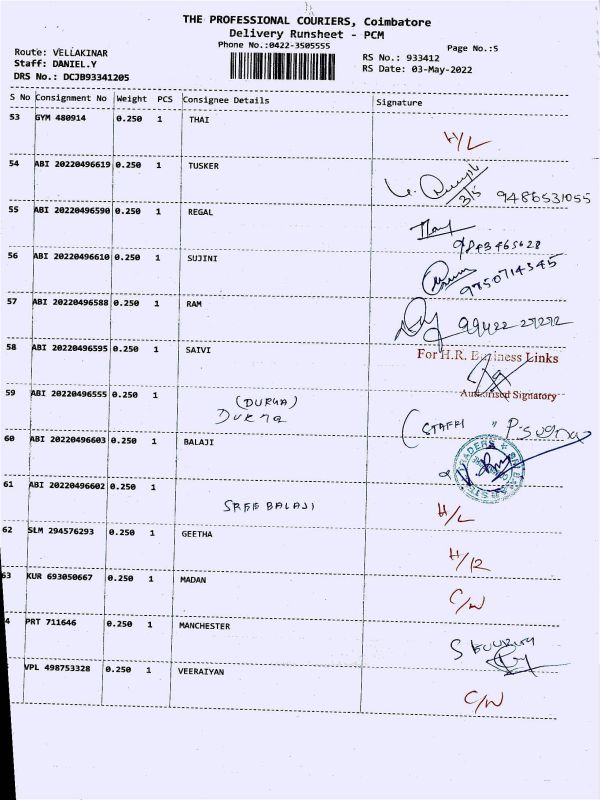 THE PROFESSIONAL COURIERS, Coimbatore
Delivery Runsheet - PCM
Phone No.:0422-3505555
Page No.:5
Route: VELLAKINAR
RS No.: 933412
Staff: DANIEL.Y
RS Date: 03-May-2022
DRS No.: DCJB93341205
S No Consignment No Weight PCS Consignee Details Signature
53 GYM 480914 0.250 1 THAI
H/L
54 ABI 20220496619 0.250 1 TUSKER
3/5 9486531055
55 ABI 20220496590 0.250 1 REGAL
9843465628
56 ABI 20220496610 0.250 1 SUJINI
9750714345
57 ABI 20220496588 0.250 1 RAM
99422 27272
58 ABI 20220496595 0.250 1 SAIVI
For H.R. Business Links
Authorised Signatory
59 ABI 20220496555 0.250 1 (DURGA)
Durga
(STAFF)
60 ABI 20220496603 0.250 1 BALAJI
TRADERS
61 ABI 20220496602 0.250 1
SREE BALAJI
H/L
62 SLM 294576293 0.250 1 GEETHA
H/R
63 KUR 693050667 0.250 1 MADAN
C/W
4 PRT 711646 0.250 1 MANCHESTER
VPL 498753328 0.250 1 VEERAIYAN
C/W